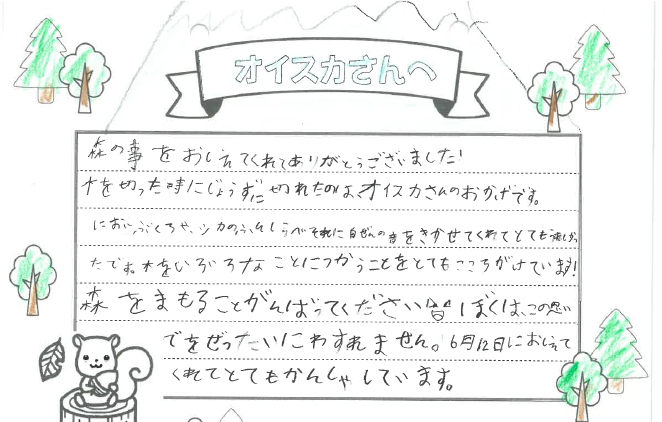 オイスカさんへ
森の事をおしえてくれてありがとうございました!
木を切った時にじょうずに切れたのは、オイスカさんのおかげです。
においぶくろや、シカのふんしらべそれに自ぜんの音をきかせてくれてとても楽しかっ
たです。木をいろいろなことにつかうことをとてもこころがけています!
森をまもることがんばってください皆ぼくは、この思い
でをぜったいにわすれません。6月12日におしえて
くれてとてもかんしゃしています。